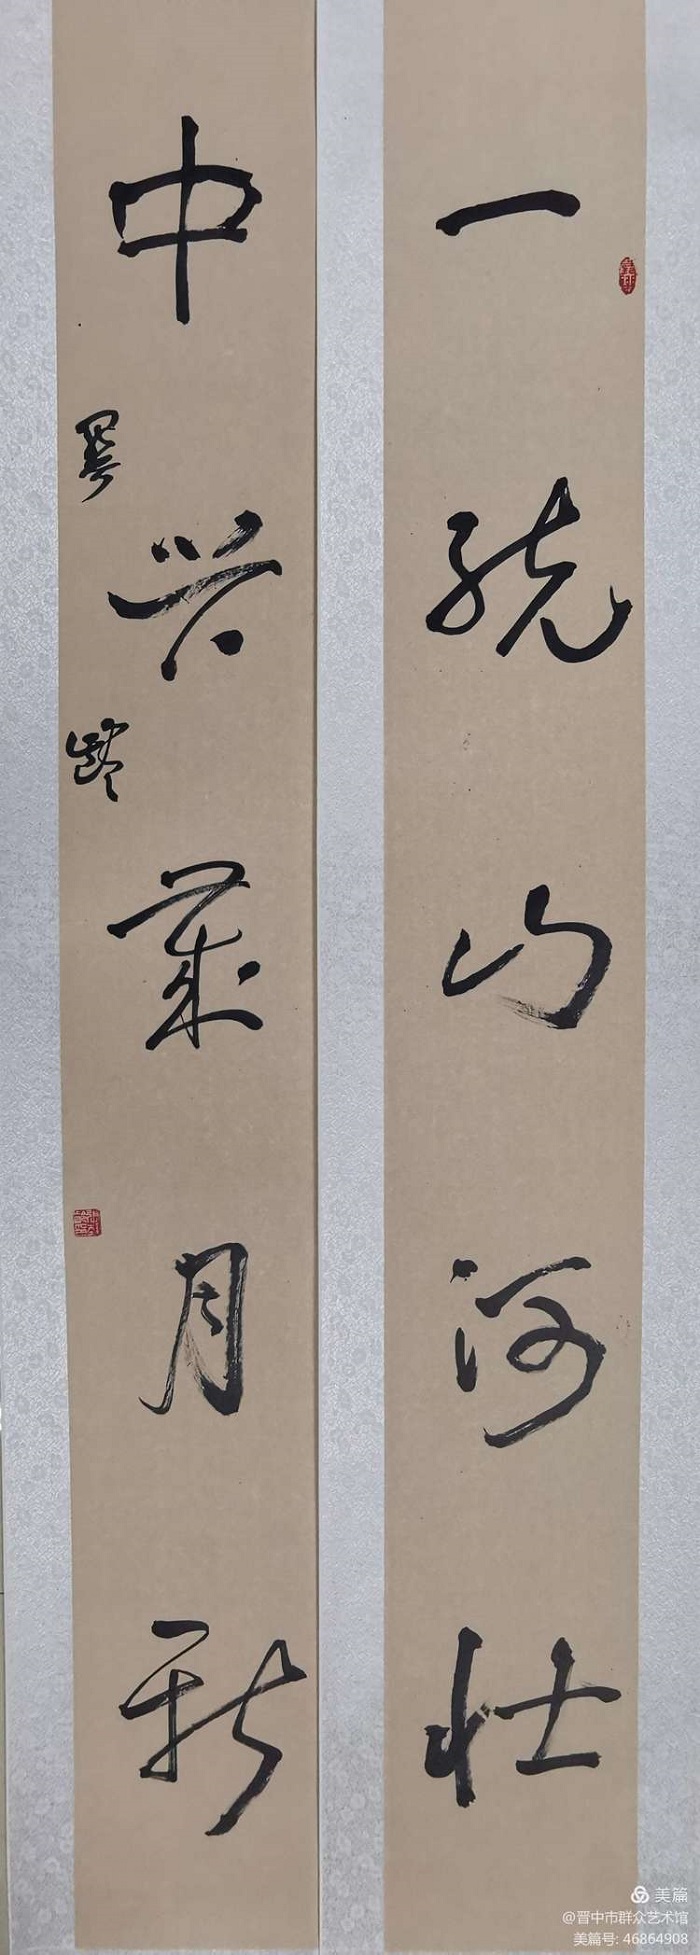 一统山河壮
中兴岁月新
美篇
@晋中市群众艺术馆
美篇号: 46864908